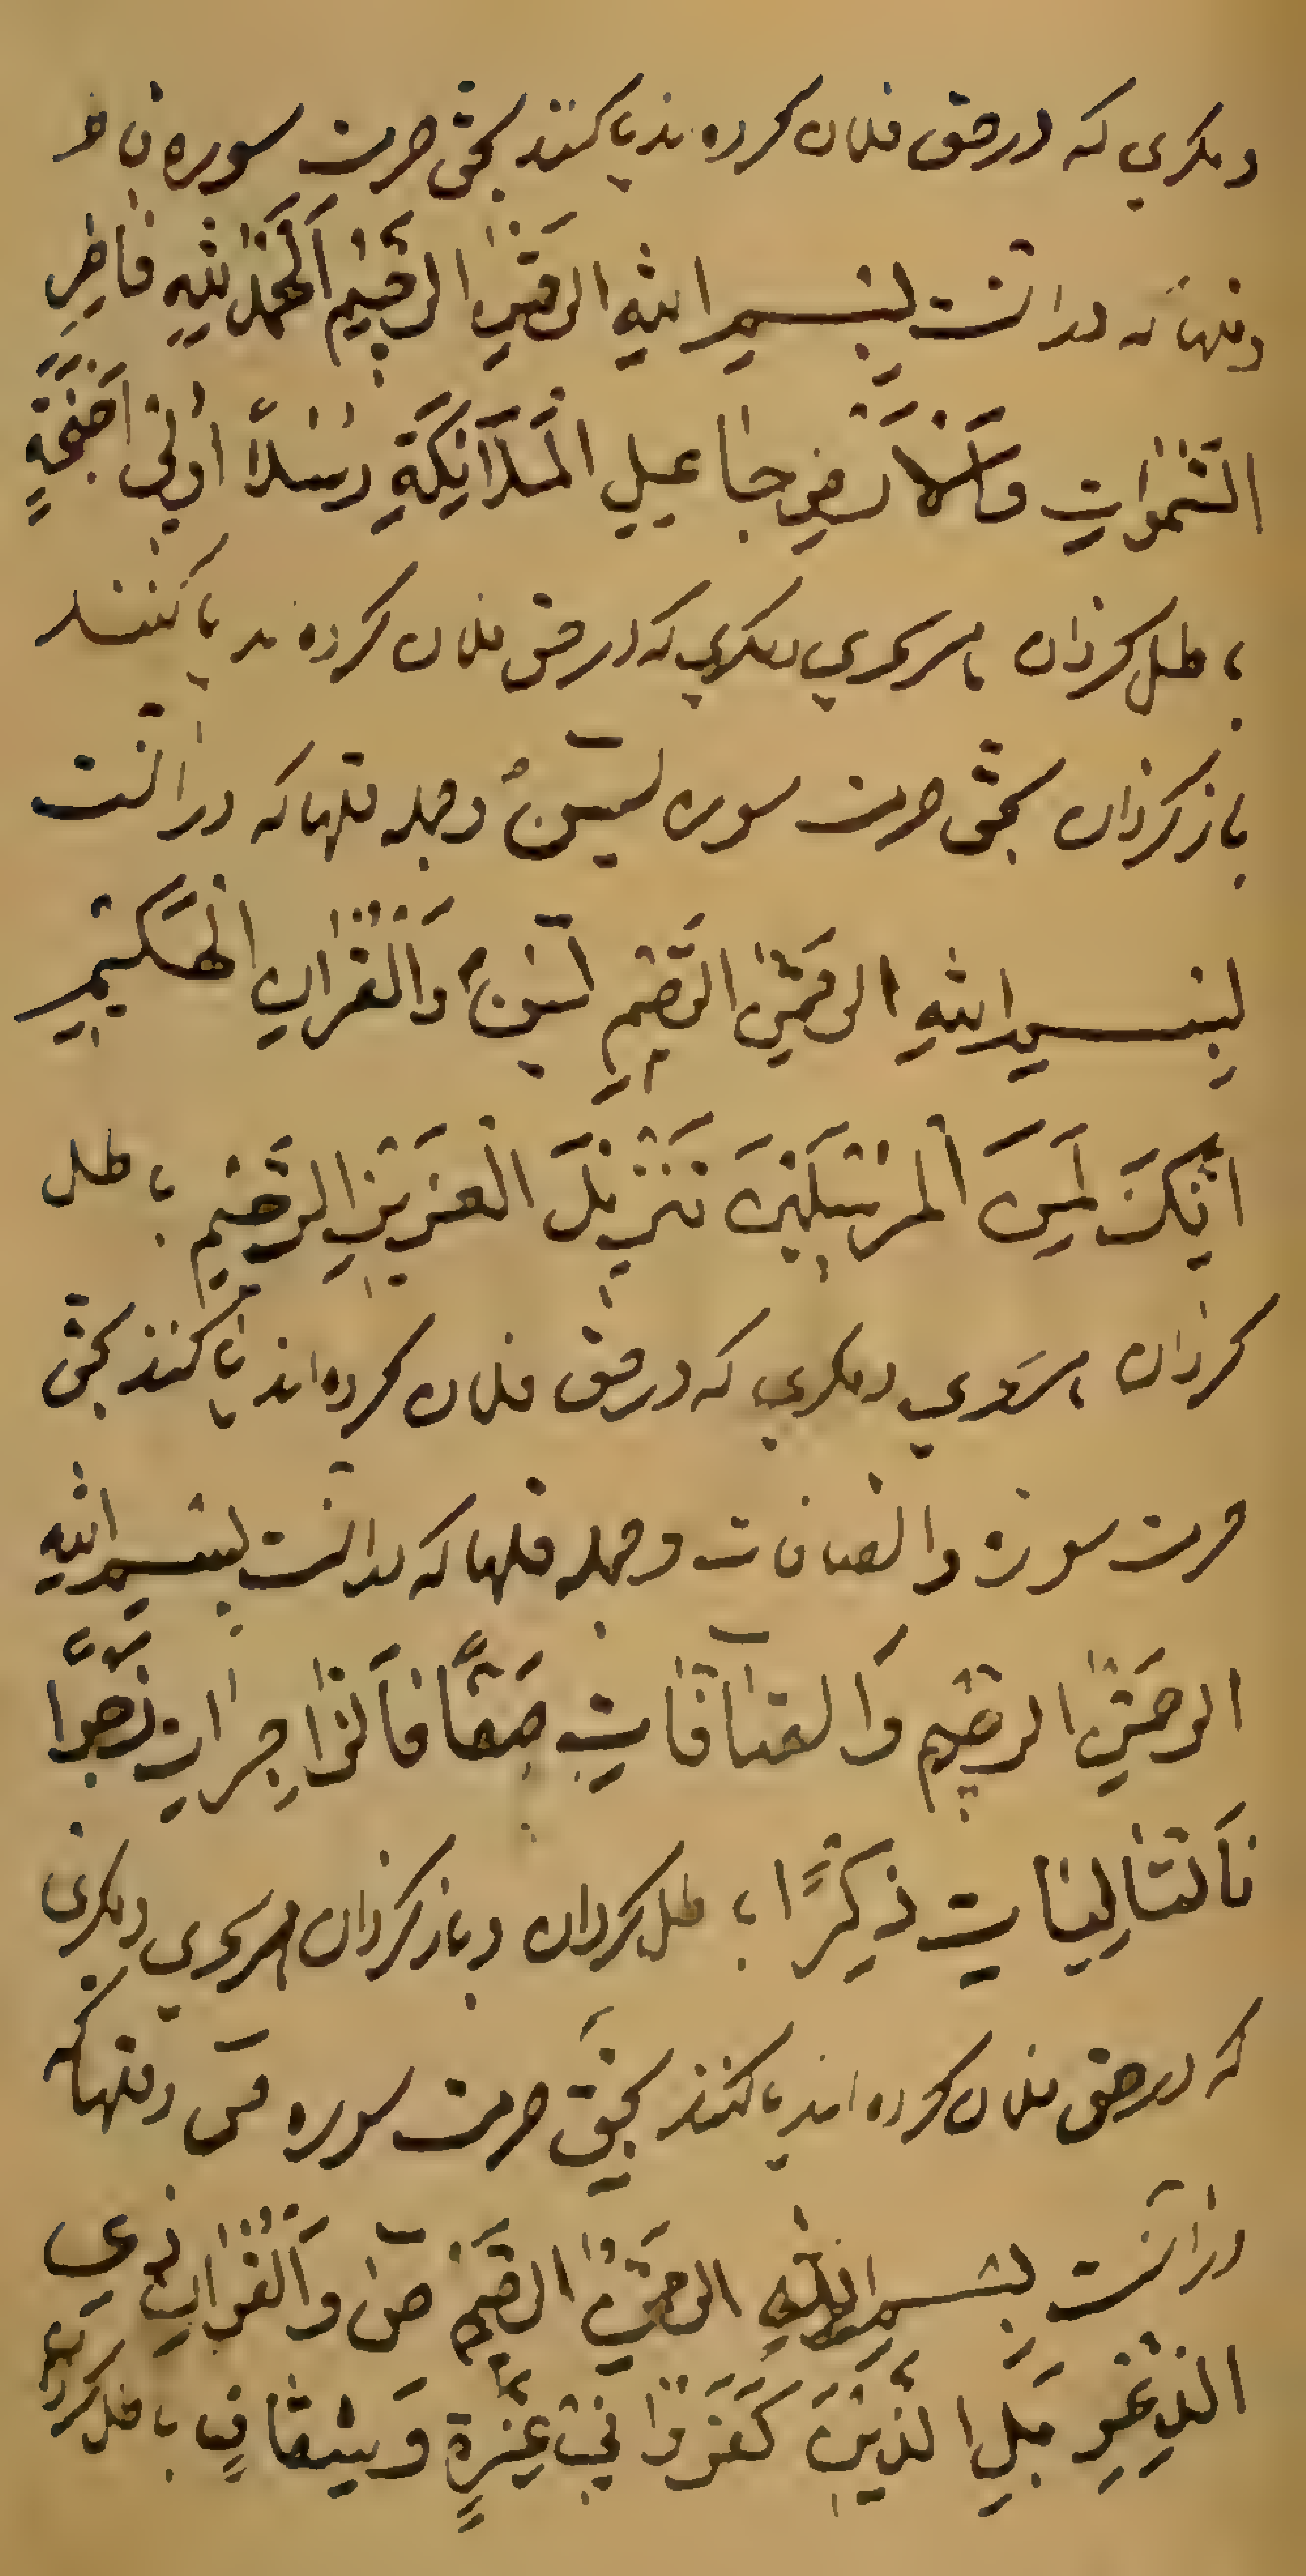 و مکری که در حق فلان کرده‌ند یا کنند بحق حرمت سوره فاطر
و قلها که در آنست بِسْمِ اللّٰهِ الرَّحْمٰنِ الرَّحِيْمِ اَلْحَمْدُ لِلّٰهِ فَاطِرِ
السَّمٰوَاتِ وَالْاَرْضِ جَاعِلِ الْمَلَآئِكَةِ رُسُلًا اُولِىْ اَجْنِحَةٍ
باطل کردان هر سحری و مکری که در حق فلان کرده‌ند یا کنند
باز کردان بحق حرمت سوره يٰسٓ و جمله قلها که در آنست
بِسْمِ اللّٰهِ الرَّحْمٰنِ الرَّحِيْمِ يٰسٓ وَالْقُرْاٰنِ الْحَكِيْمِ
اِنَّكَ لَمِنَ الْمُرْسَلِيْنَ تَنْزِيْلَ الْعَزِيْزِ الرَّحِيْمِ باطل
کردان هر سحری و مکری که در حق فلان کرده‌اند یا کنند بحق
حرمت سورة والصافات و جمله قلها که در آنست بِسْمِ اللّٰهِ
الرَّحْمٰنِ الرَّحِيْمِ وَالصَّآفَّاتِ صَفًّا فَالزَّاجِرَاتِ زَجْرًا
فَالتَّالِيَاتِ ذِكْرًا باطل کردان و باز کردان هر سحری و مکری
که در حق فلان کرده‌اند یا کنند بحق حرمت سوره صٓ و قلها که
در آنست بِسْمِ اللّٰهِ الرَّحْمٰنِ الرَّحِيْمِ صٓ وَالْقُرْاٰنِ ذِى
الذِّكْرِ بَلِ الَّذِيْنَ كَفَرُوْا فِىْ عِزَّةٍ وَشِقَاقٍ باطل کردان